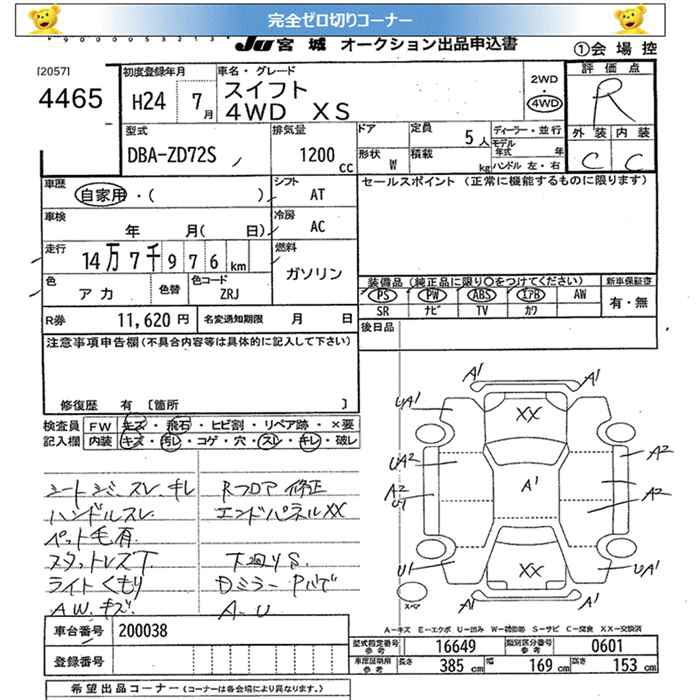 完全ゼロ切りコーナー
Ju 宮城 オークション出品申込書
①会場控
[2057]
4465
初度登録年月
H24 7月
車名・グレード
スイフト
4WD XS
2WD
・
4WD
評価点
R
型式
DBA-ZD72S
排気量
1200 cc
ドア
定員 5人
形状 W
積載 kg
ディーラー・並行
モデル年式 年
ハンドル 左・右
外装 内装
C C
車歴
自家用・( )
シフト
AT
セールスポイント (正常に機能するものに限ります)
車検
年 月( 日)
冷房
AC
走行
14万7千976km
燃料
ガソリン
色
アカ
色替
色コード
ZRJ
装備品 (純正品に限り○をつけてください)
新車保証書
PS PW ABS エアB AW
有・無
SR ナビ TV カワ
R券 11,620円
名変通知期限 月 日
後日品
注意事項申告欄(不具合内容等は具体的に記入して下さい)
修復歴 有 [箇所 ]
検査員 FW キズ・飛石・ヒビ割・リペア跡・×要
記入欄 内装 キズ・汚レ・コゲ・穴・スレ・キレ・破レ
シートシミ、スレ、キレ
ハンドルスレ
ペット毛有
スタットレスT
ライトくもり
A.W.キズ
Rフロア修正
エンドパネルXX
下廻りS
DミラーP
A-U
A1
A1
UA1
A1
XX
UA2
A2
A2
U1
A1
A2
U1
XX
UA1
スペア
A1
A1
A-キズ E-エクボ U-凹み W-補修跡 S-サビ C-腐食 XX-交換済
車台番号 200038
登録番号
型式指定番号 参考 16649
類別区分番号 参考 0601
車庫証明用 参考 長さ 385 cm 幅 169 cm 高さ 153 cm
希望出品コーナー (コーナーは各会場により異なります。)